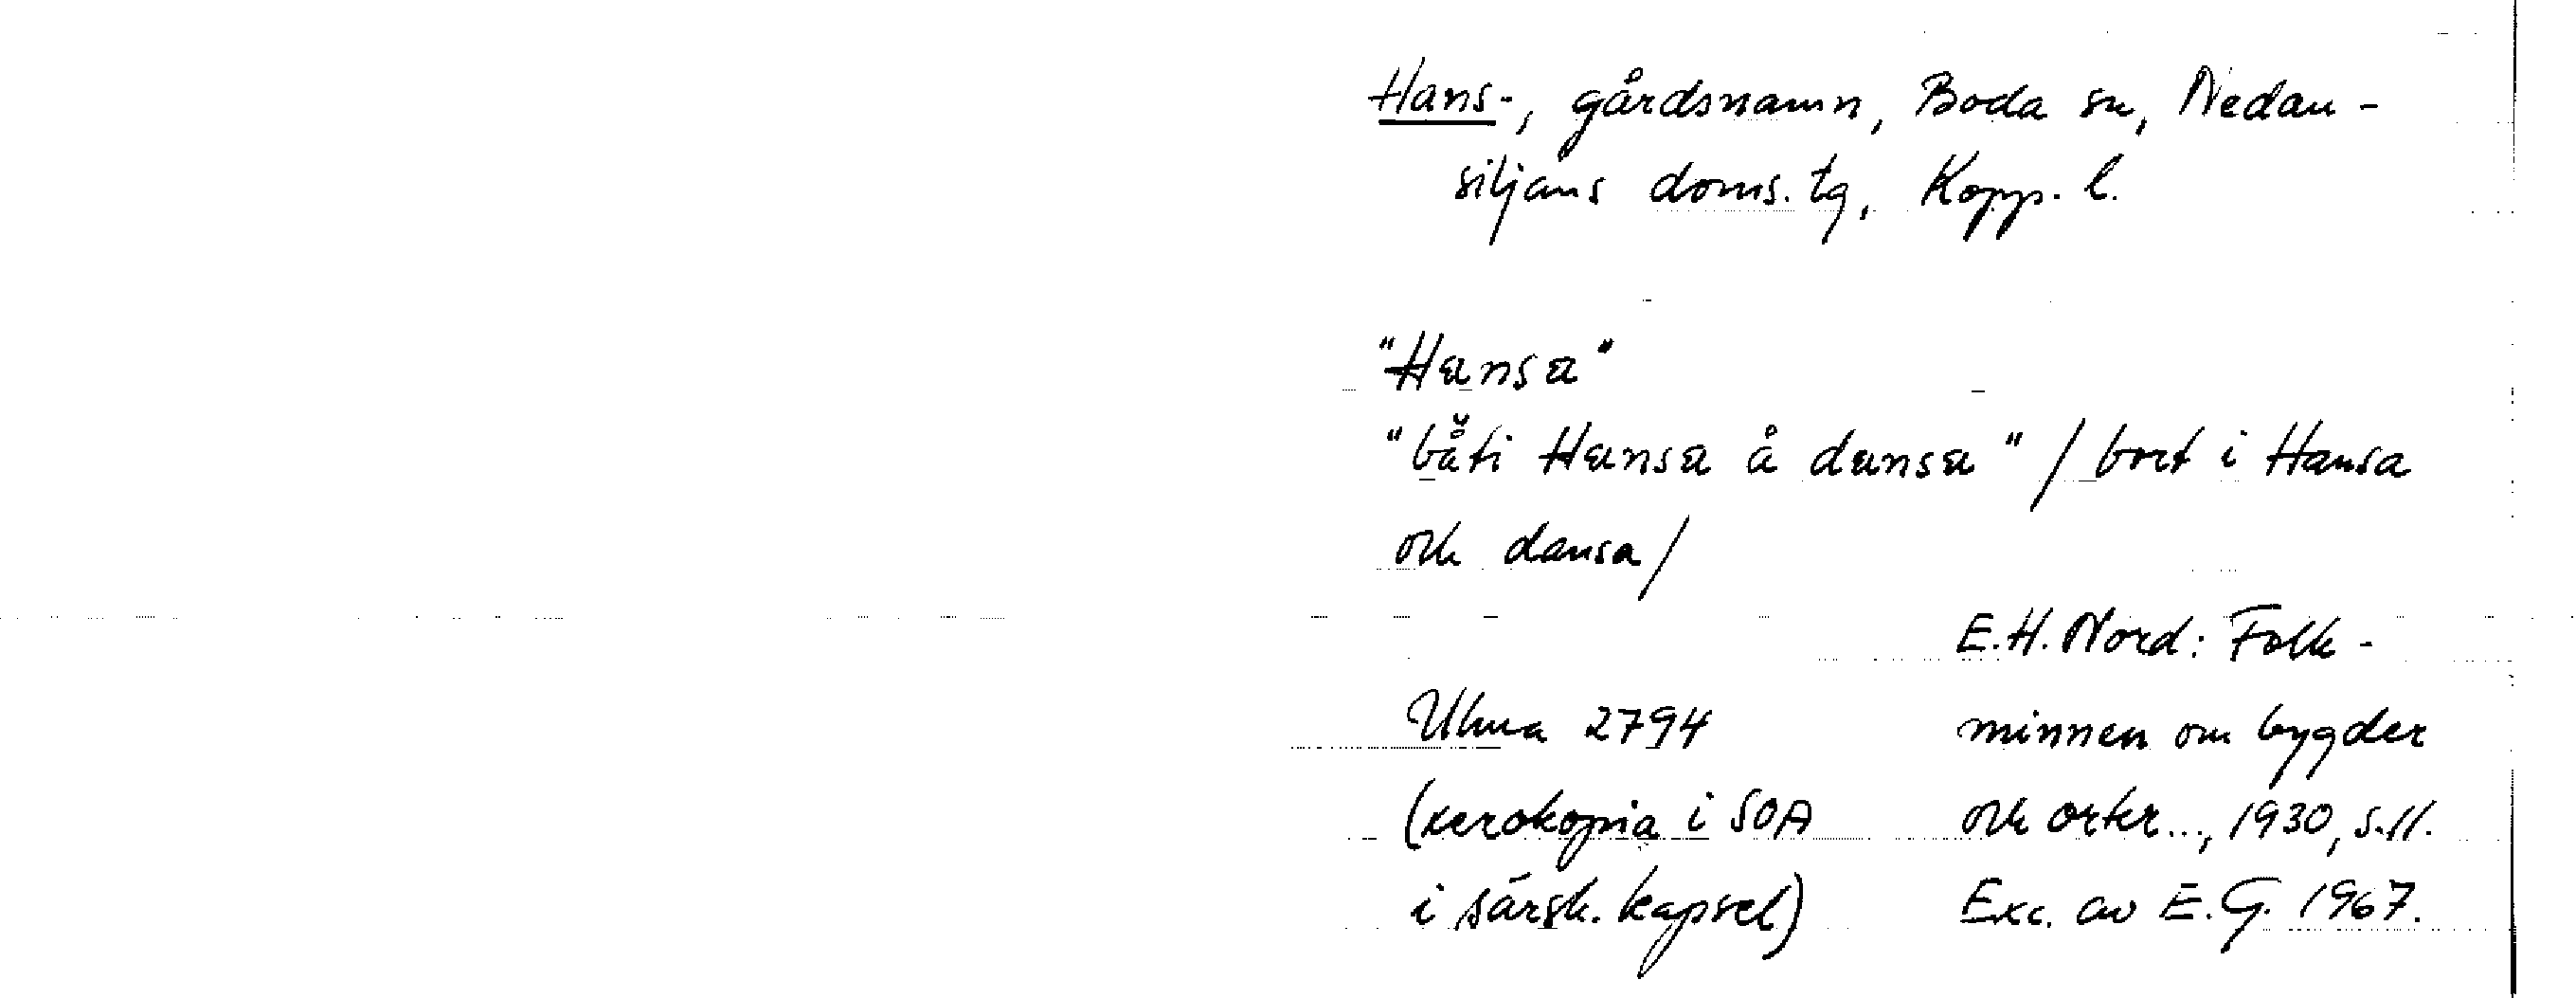 Hans-, gårdsnamn, Boda sn, Nedan-
siljans doms. tg, Kopp. l.
"Hansa"
"båti Hansa å dansa" / bort i Hansa
och dansa/
E.H. Nord: Folk-
Ulma 2794 minnen om bygder
(xerokopia i SOA och orter..., 1930, s. 11.
i särsk. kapsel) Exc. av E.G. 1967.